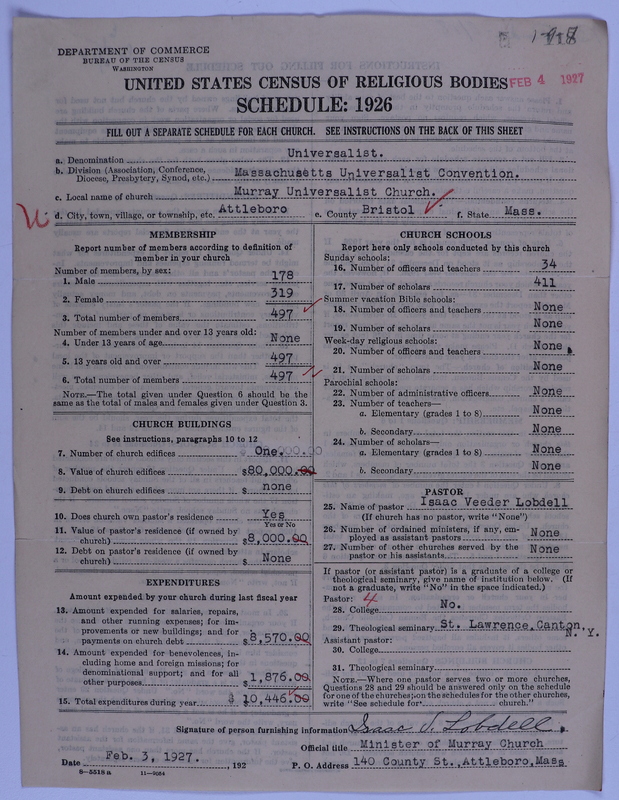 1918
DEPARTMENT OF COMMERCE
BUREAU OF THE CENSUS
WASHINGTON
UNITED STATES CENSUS OF RELIGIOUS BODIES
FEB 4 1927
SCHEDULE: 1926
FILL OUT A SEPARATE SCHEDULE FOR EACH CHURCH. SEE INSTRUCTIONS ON THE BACK OF THIS SHEET
a. Denomination Universalist.
b. Division (Association, Conference, Diocese, Presbytery, Synod, etc.) Massachusetts Universalist Convention.
c. Local name of church Murray Universalist Church.
d. City, town, village, or township, etc. Attleboro e. County Bristol f. State Mass.
MEMBERSHIP
Report number of members according to definition of
member in your church
Number of members, by sex:
1. Male 178
2. Female 319
3. Total number of members 497
Number of members under and over 13 years old:
4. Under 13 years of age None
5. 13 years old and over 497
6. Total number of members 497
NOTE.—The total given under Question 6 should be the
same as the total of males and females given under Question 3.
CHURCH BUILDINGS
See instructions, paragraphs 10 to 12
7. Number of church edifices One.
8. Value of church edifices $80,000.00
9. Debt on church edifices $ none
10. Does church own pastor's residence Yes
Yes or No
11. Value of pastor's residence (if owned by
church) $8,000.00
12. Debt on pastor's residence (if owned by
church) $ None
EXPENDITURES
Amount expended by your church during last fiscal year
13. Amount expended for salaries, repairs,
and other running expenses; for im-
provements or new buildings; and for
payments on church debt $8,570.00
14. Amount expended for benevolences, in-
cluding home and foreign missions; for
denominational support; and for all
other purposes $1,876.00
15. Total expenditures during year $ 10,446.00
CHURCH SCHOOLS
Report here only schools conducted by this church
Sunday schools:
16. Number of officers and teachers 34
17. Number of scholars 411
Summer vacation Bible schools:
18. Number of officers and teachers None
19. Number of scholars None
Week-day religious schools:
20. Number of officers and teachers None
21. Number of scholars None
Parochial schools:
22. Number of administrative officers None
23. Number of teachers—
a. Elementary (grades 1 to 8) None
b. Secondary None
24. Number of scholars—
a. Elementary (grades 1 to 8) None
b. Secondary None
PASTOR
25. Name of pastor Isaac Veeder Lobdell
(If church has no pastor, write "None")
26. Number of ordained ministers, if any, em-
ployed as assistant pastors None
27. Number of other churches served by the
pastor or his assistants None
If pastor (or assistant pastor) is a graduate of a college or
theological seminary, give name of institution below. (If
not a graduate, write "No" in the space indicated.)
Pastor: 4
28. College No.
29. Theological seminary St. Lawrence, Canton, N. Y.
Assistant pastor:
30. College
31. Theological seminary
NOTE.—Where one pastor serves two or more churches,
Questions 28 and 29 should be answered only on the schedule
for one of the churches; on the schedules for the other churches,
write "See schedule for church."
Signature of person furnishing information Isaac V. Lobdell
Official title Minister of Murray Church
Date Feb. 3, 1927. , 192 P. O. Address 140 County St., Attleboro, Mass
8-5518 a 11-9084